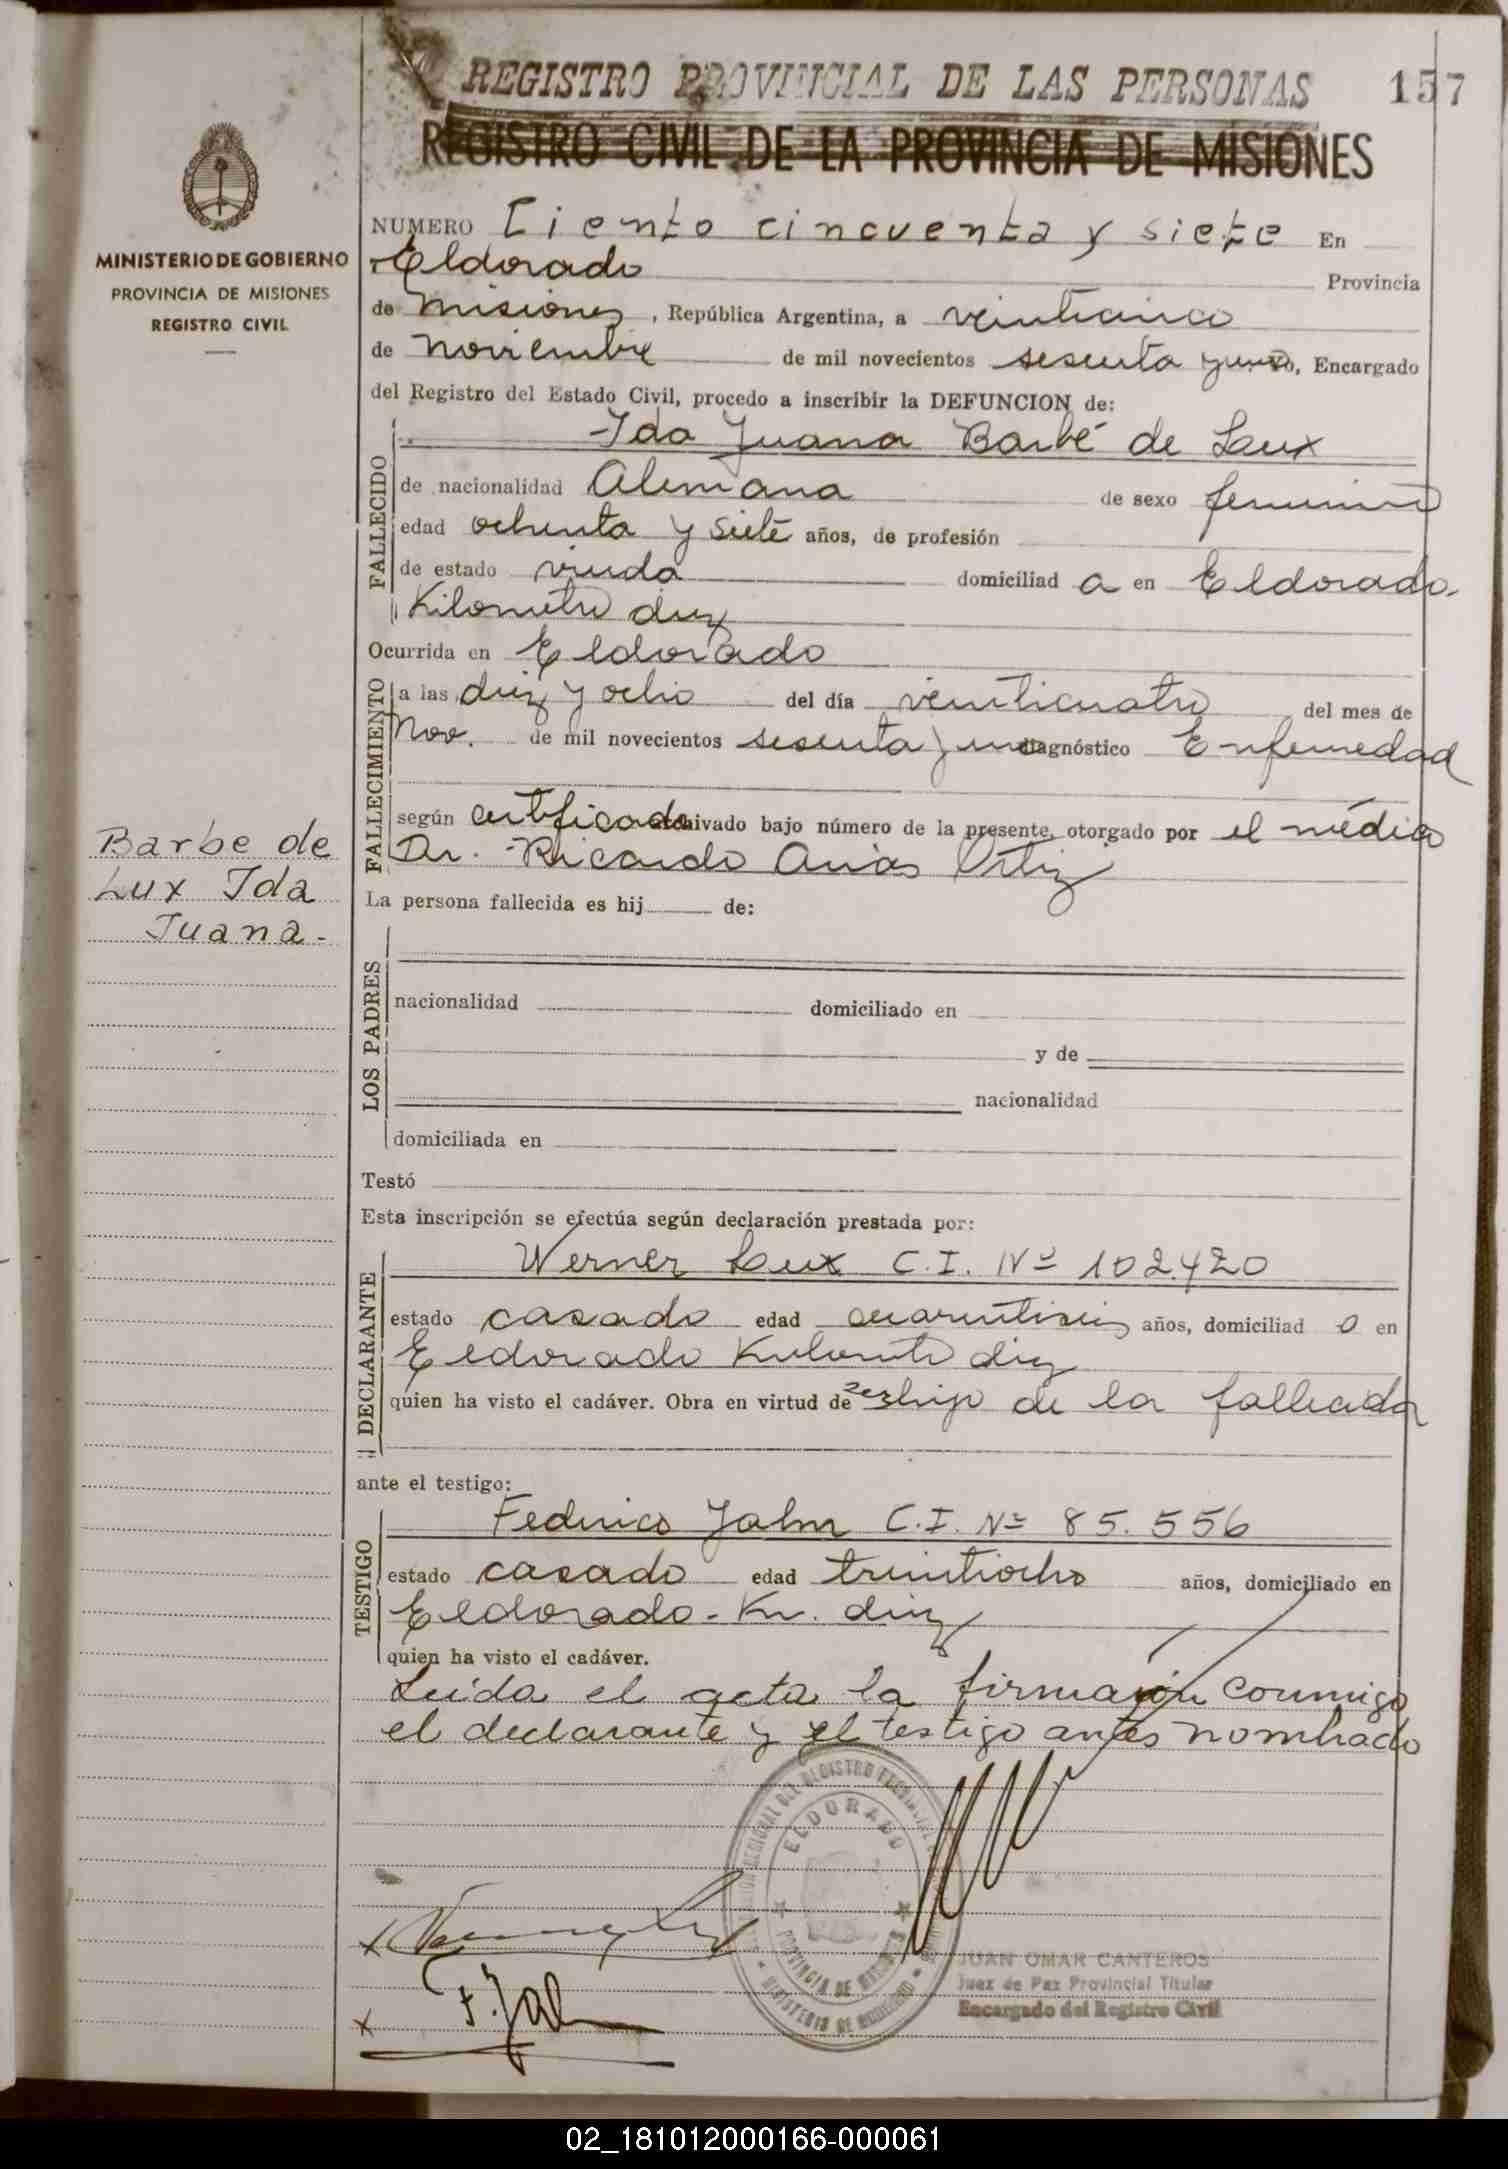 REGISTRO PROVINCIAL DE LAS PERSONAS 157
REGISTRO CIVIL DE LA PROVINCIA DE MISIONES
MINISTERIO DE GOBIERNO
PROVINCIA DE MISIONES
REGISTRO CIVIL
NUMERO Ciento cincuenta y siete En
Eldorado Provincia
de Misiones, República Argentina, a veinticinco
de noviembre de mil novecientos sesenta y uno, Encargado
del Registro del Estado Civil, procedo a inscribir la DEFUNCION de:
FALLECIDO
Ida Juana Barbé de Lux
de nacionalidad Alemana de sexo femenino
edad ochenta y siete años, de profesión
de estado viuda domiciliad a en Eldorado.
Kilometro diez
Ocurrida en Eldorado
FALLECIMIENTO
a las diez y ocho del día veinticuatro del mes de
Nov. de mil novecientos sesenta y uno diagnóstico Enfermedad
según certificado archivado bajo número de la presente, otorgado por el médico
Dr. Ricardo Arias Ortiz
Barbe de
Lux Ida
Juana.-
La persona fallecida es hij de:
LOS PADRES
nacionalidad domiciliado en
y de
nacionalidad
domiciliada en
Testó
Esta inscripción se efectúa según declaración prestada por:
DECLARANTE
Werner Lux C.I. Nº 102.420
estado casado edad años, domiciliad o en
Eldorado Kilometro diez
quien ha visto el cadáver. Obra en virtud de ser hijo de la fallecida
ante el testigo:
TESTIGO
Federico Jahn C.I. Nº 85.556
estado casado edad treintiocho años, domiciliado en
Eldorado - Km. diez
quien ha visto el cadáver.
Leída el acta la firmaron conmigo
el declarante y el testigo antes nombrado
ELDORADO
PROVINCIA DE MISIONES
MINISTERIO DE GOBIERNO
JUAN OMAR CANTEROS
Juez de Paz Provincial Titular
Encargado del Registro Civil
x
x F. Jahn
02_181012000166-000061